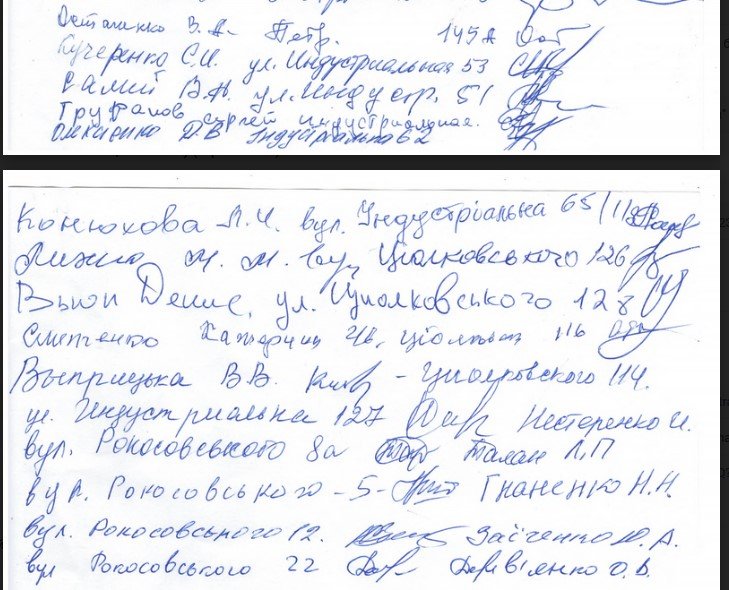 Остапенко В.А. Петр. 145А
Кучеренко С.И. ул. Индустриальная 53
Самий В.Н. ул. Индустр. 51
Труфанов Сергей индустриальная.
Д В Індустріальна 62
Конюхова Л.И. вул. Індустріальна 65/11
М. М. вул. Ціолковського 126
Вьюн Денис, ул. Циолковського 128
116
В.В. - Циолковского 114.
ул. Индустриальна 127 Нестеренко И.
вул. Рокосовського 8а Талан Л.П
вул. Рокосовського - 5 - Гнаненко Н.Н.
вул. Рокосовського 12. Заїченко Ю.А.
вул Рокосовського 22 Дерев'янко О.В.